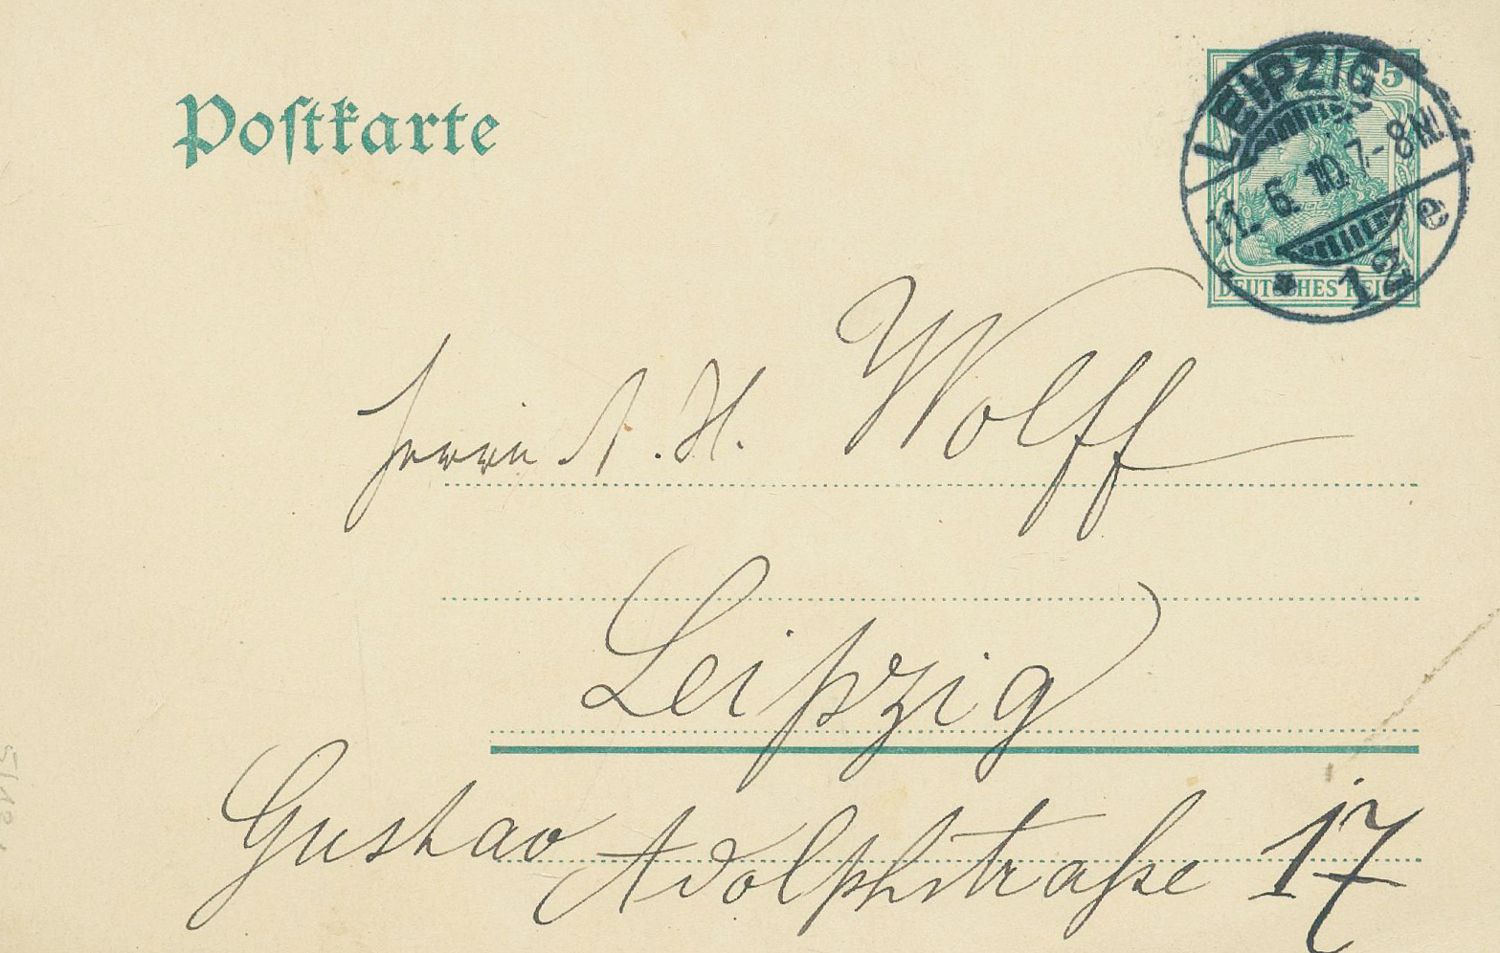 Postkarte
5
LEIPZIG
11. 6. 10. 7-8 N.
e
* 12
DEUTSCHES REICH
Herrn A. H. Wolff
Leipzig
Gustav Adolphstraße 17